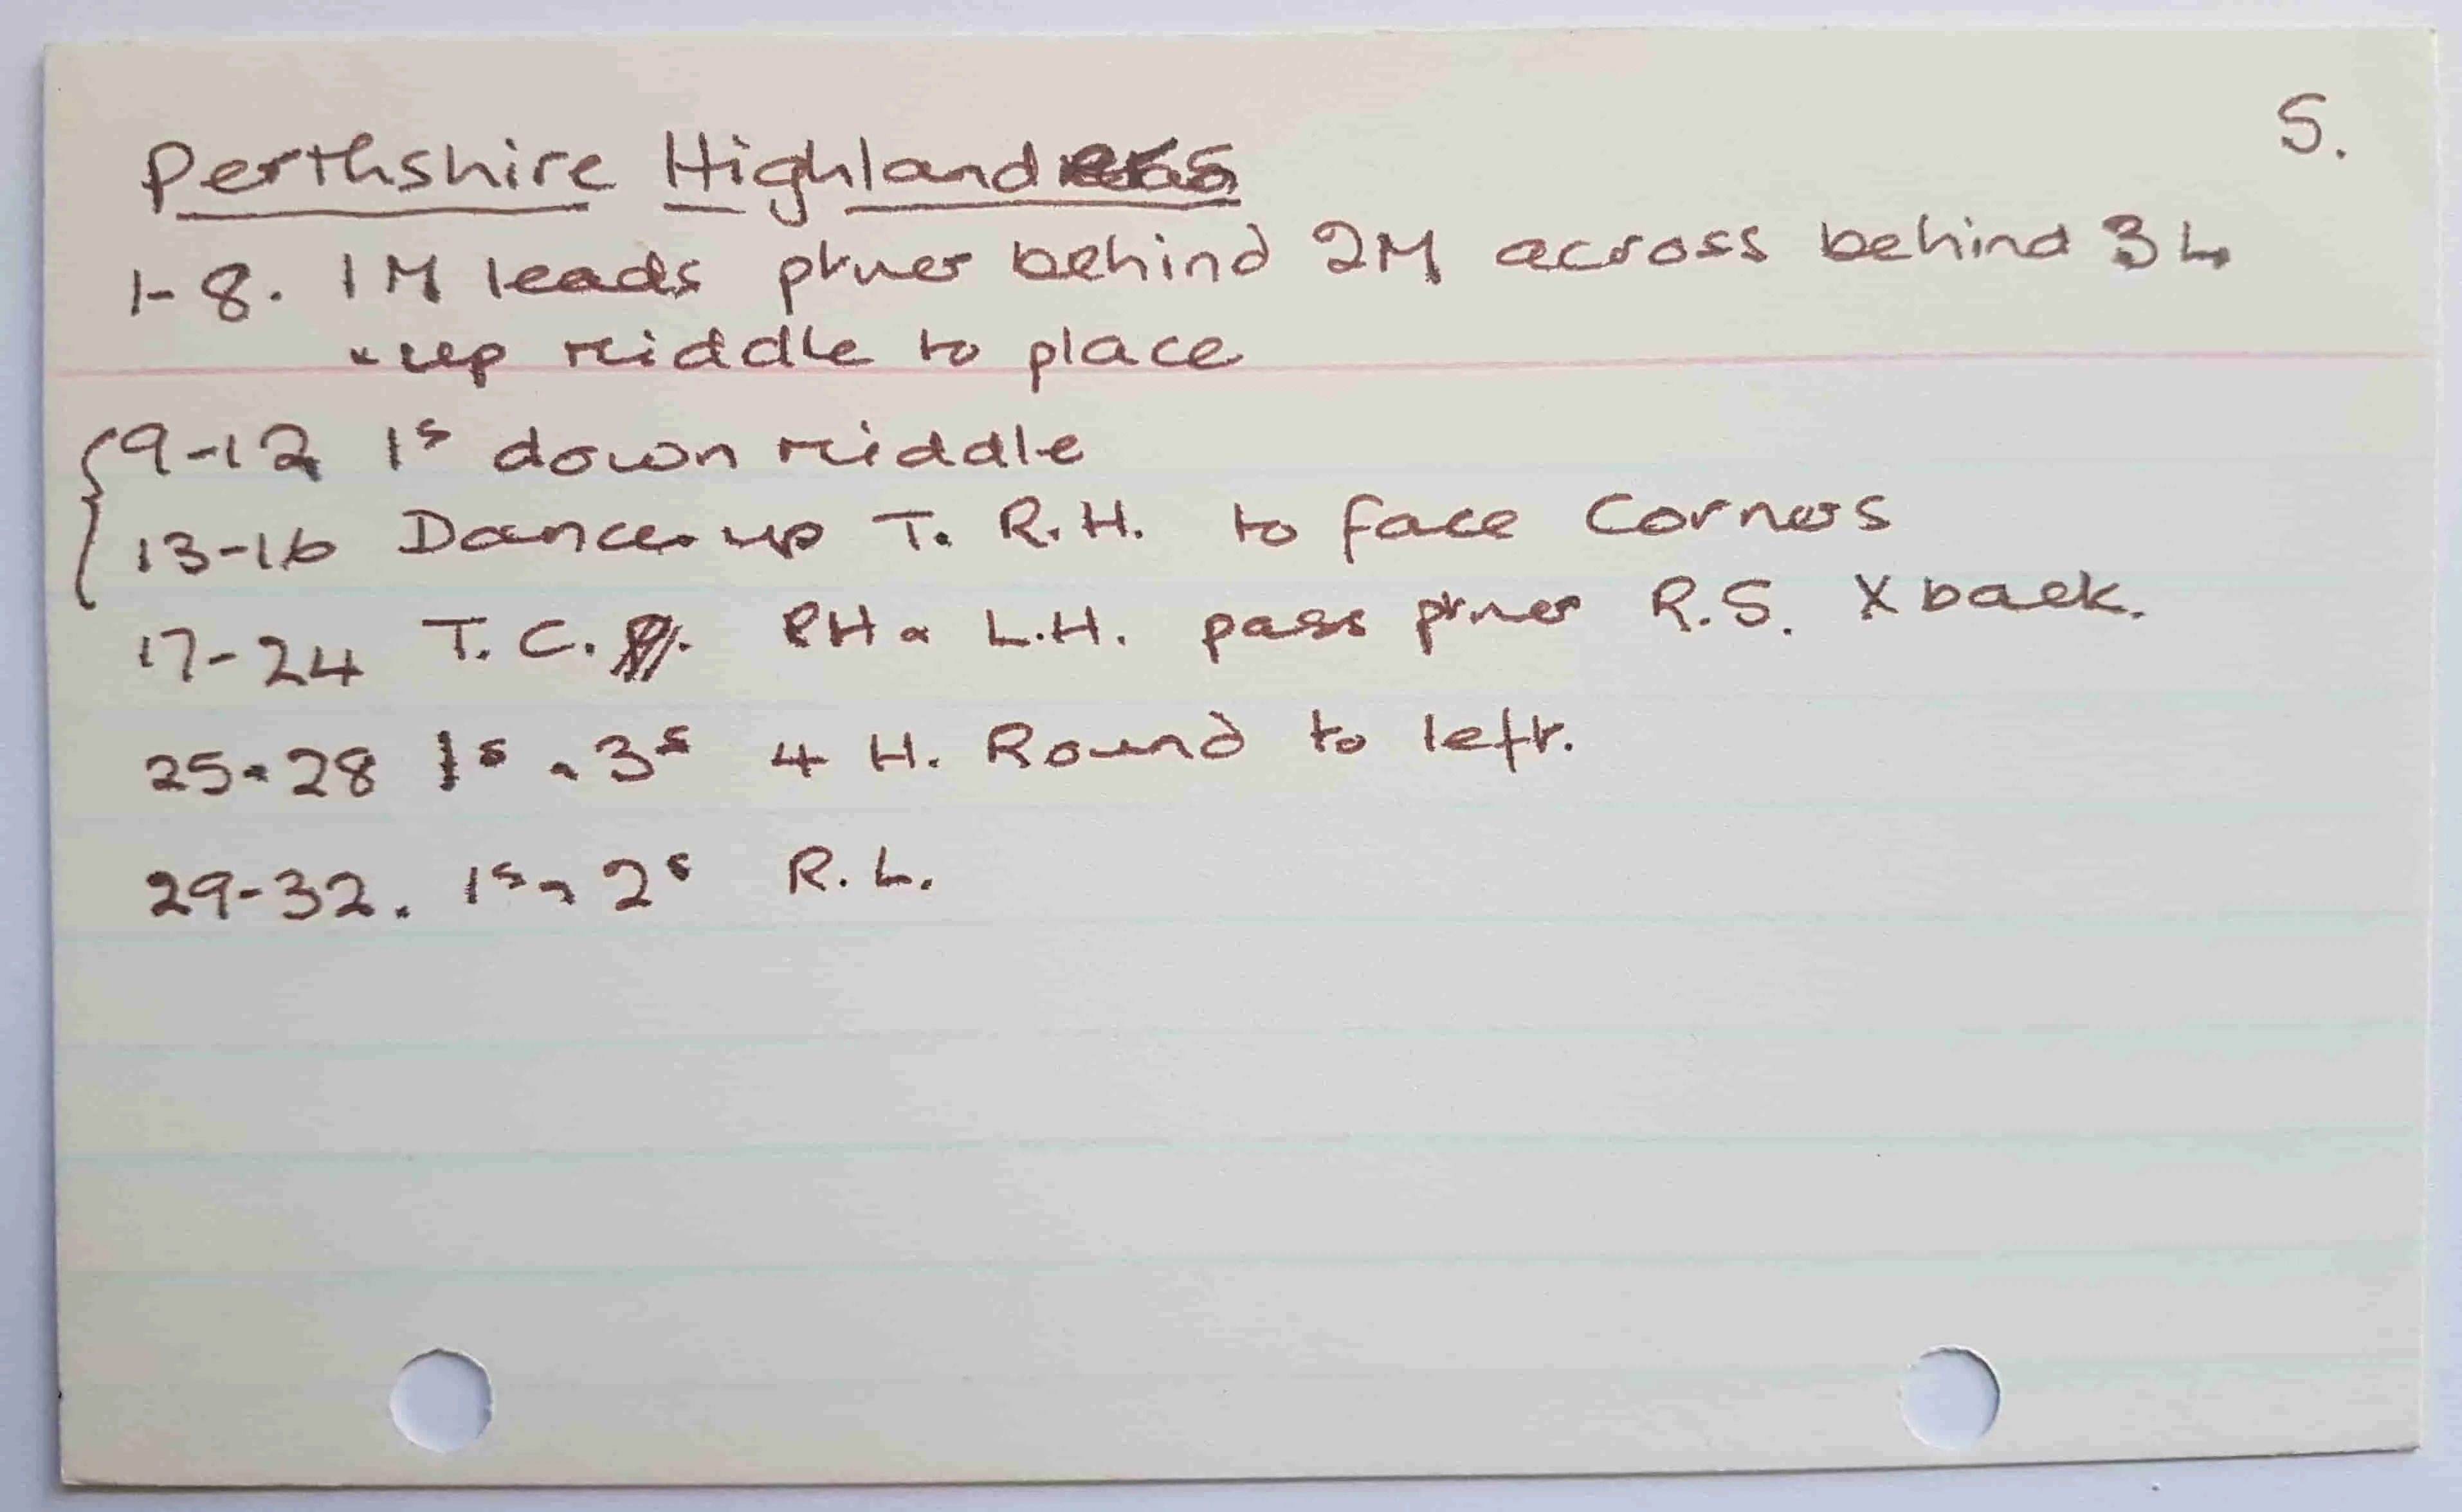 S.
Perthshire Highlanders
1-8. 1M leads ptner behind 2M across behind 3L
& up middle to place
9-12 1s down middle
13-16 Dance up T. R.H. to face Corners
17-24 T.C. RH & L.H. pass ptner R.S. X back.
25-28 1s & 3s 4 H. Round to left.
29-32. 1s & 2s R.L.